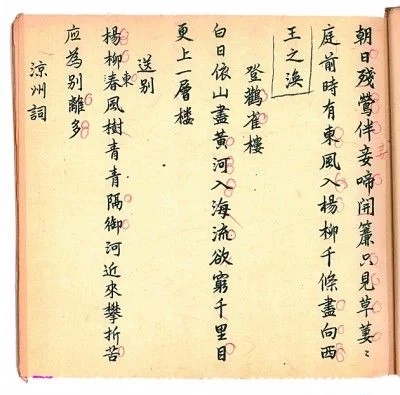 朝日殘鶯伴妾啼開簾只見草萋〻
庭前時有東風入楊柳千條盡向西
王之渙
登鸛雀樓
白日依山盡黃河入海流欲窮千里目
更上一層楼
送别
楊柳春風樹青青隔御河近來攀折苦
東
应為别離多
涼州詞